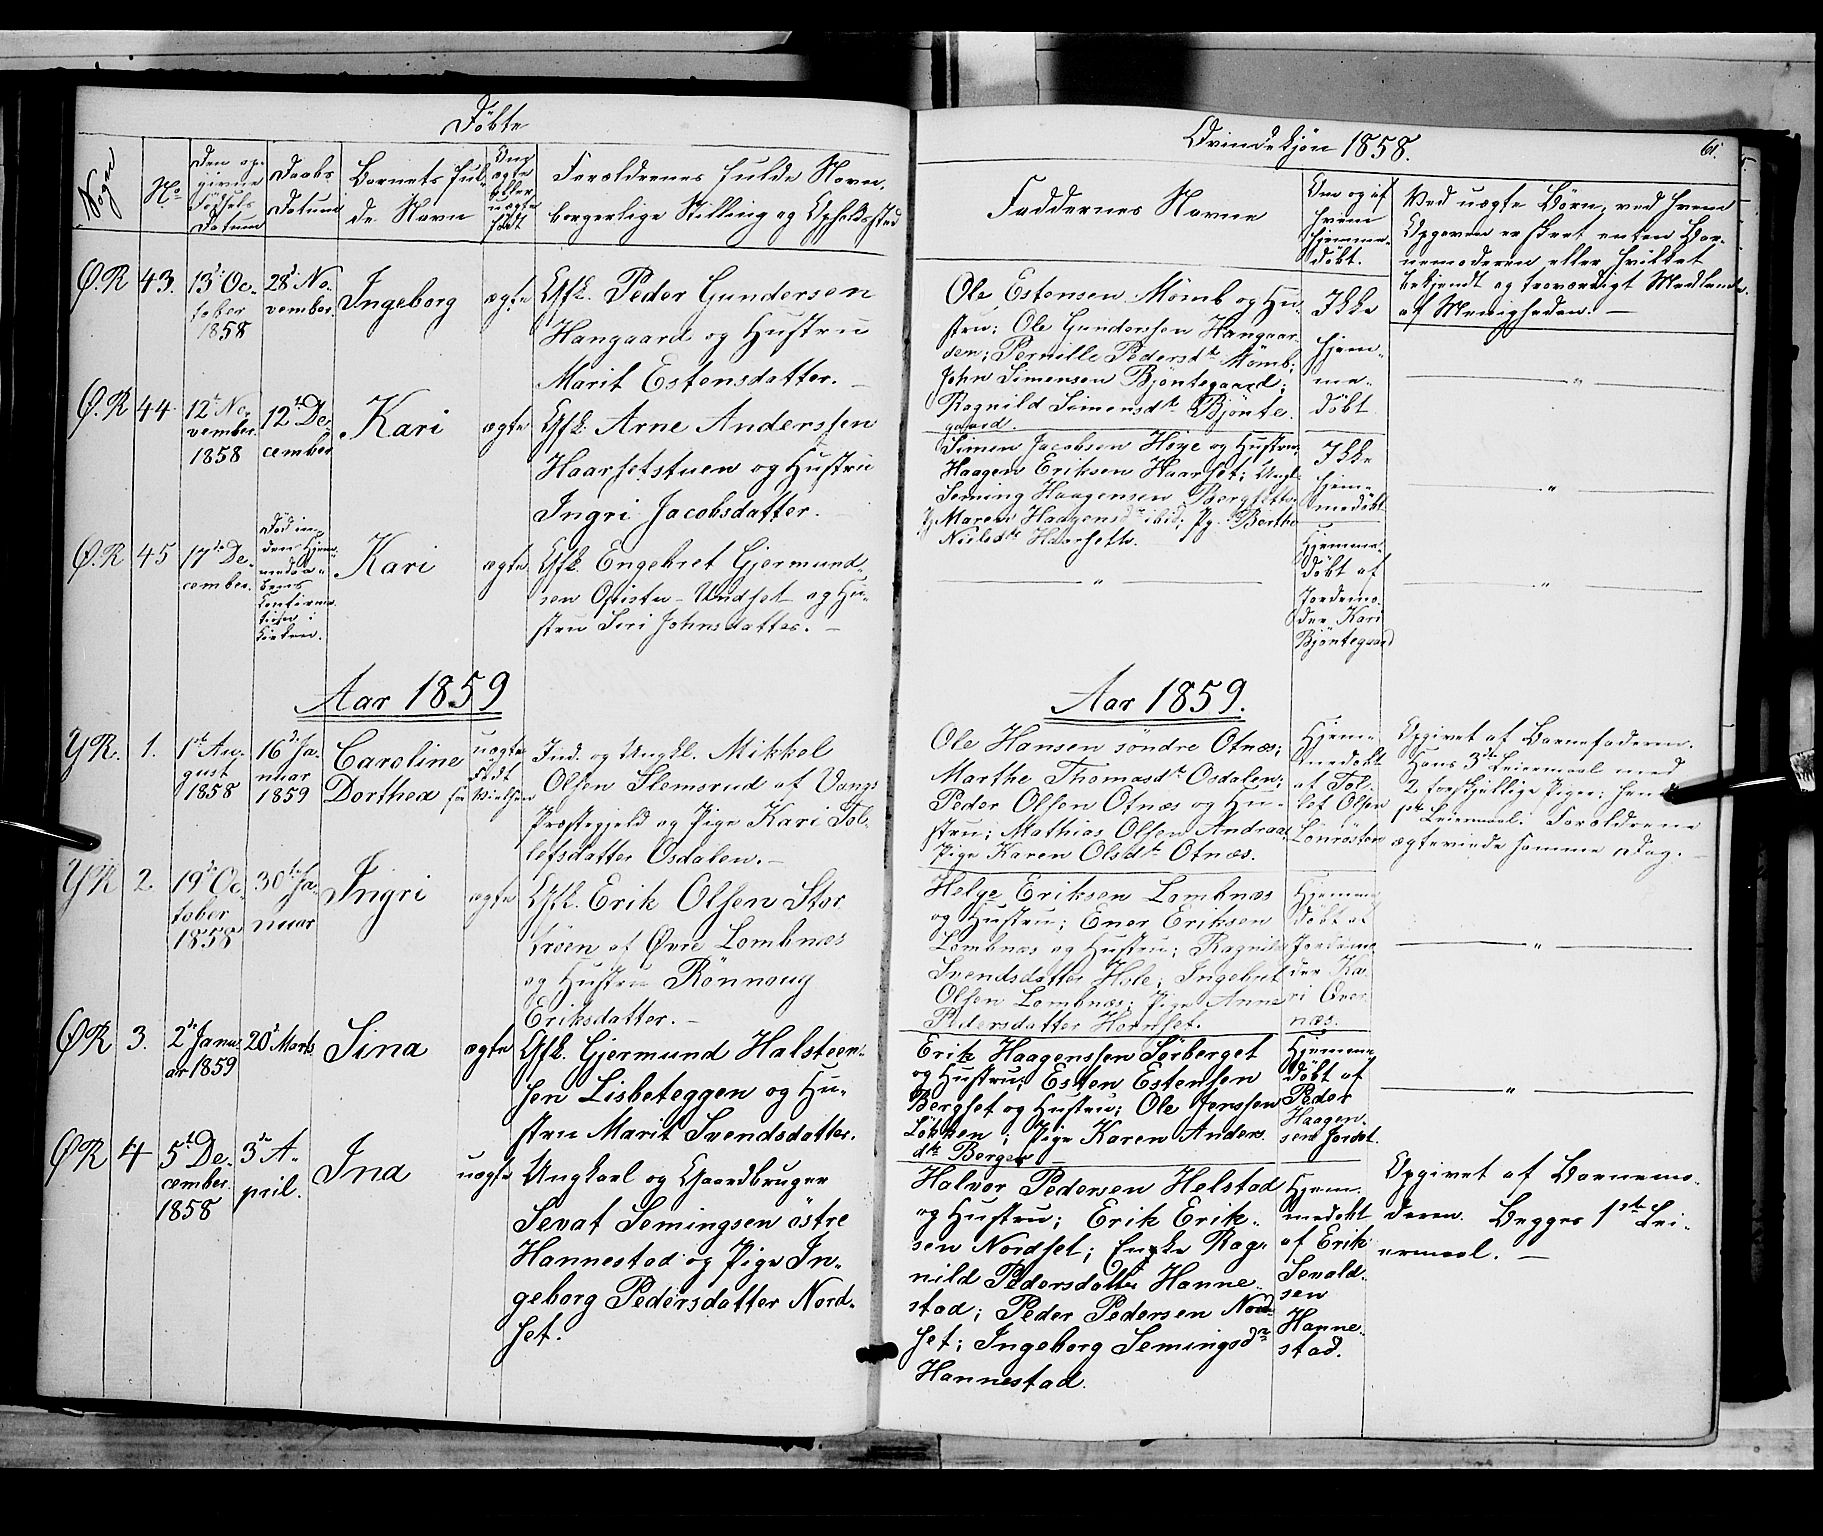 Døbte
Qvindekjøn 1858.
61.
Sogn
No
Den op-
givne
Fødsels
Datum
Daabs
Datum
Barnets ful-
de Navn
Om
ægte
eller
uægte
født
Forældrenes fulde Navn,
borgerlige Stilling og Opholdssted
Faddernes Navne
Om og af
hvem
hjemme-
døbt.
Ved uægte Børn, ved hvem
Opgaven er skeet enten Bar-
nemoderen eller hvilket
bekjendt og troværdigt Medlem
af Menigheden. —
Ø.R 43. 13de Oc-
tober
1858
28de No-
vember.
Ingeborg
ægte
Gfk. Peder Gundersen
Hangaard og Hustru
Marit Estensdatter. —
Ole Estensen Momb og Hu-
stru; Ole Gundersen Hangaar
den; Pernille Pedersdtr Momb;
John Simensen Bjöntegaard;
Ragnild Simensdtr Bjönte-
gaard
Ikke
hjem-
me-
døbt
— " —
Ø.R 44 12te No-
vember.
1858
12te De-
cember
Kari
ægte
Gfk. Arne Anderssen
Haarsetstuen og Hustru
Ingri Jacobsdatter. —
Simen Jacobsen Høye og Hustru
Haagen Eriksen Haarset; Ungk.
Seming Haagensen Bergsett
Maren Haagensdtr ibid; Pg. Berthe
Nielsdtr Haarseth.
Ikke
hjem-
medøbt
— " —
Ø.R 45 17de De-
cember.
Død in-
den Hjem-
medaa-
bens
Confirma-
tion i
Kirken.
Kari
ægte
Gfk. Engebret Gjermund-
sen Undset og Hu-
stru Siri Johnsdatter. —
— " —
Hjemme-
døbt af
Jordemo-
der Kari
Bjöntegaard
— " —
Aar 1859
Aar 1859.
YR. 1. 1ste Au-
gust
1858
16de Ja-
nuar
1859
Caroline
Dorthea
uægte
Født
før Vielsen
Ind. og Ungkl. Mikkel
Olsen Slemsrud af Vangs
Præstegjeld og Pige Kari Tol-
lefsdatter Osdalen. —
Ole Hansen söndre Otnæs;
Marthe Thomasdtr Osdalen;
Peder Olsen Otnæs og Hu-
stru; Mathias Olsen Andraa
Pige Karen Olsdtr Otnæs.
Hjem-
medøbt
af Tol-
lef Olsen
Lonrøsten
Opgivet af Barnefaderen.
Hans 3die Leiermaal med
2 forskjellige Piger; hendes
1ste Leiermaal. Forældrene
ægteviede samme Dag. —
YR 2. 19de Oc-
tober
1858
30te Ja-
nuar
Ingri
ægte
Gfk. Erik Olsen Stor
krøen af Øvre Lombnæs
og Hustru Rönnoug
Eriksdatter. —
Helge Eriksen Lombnæs
og Hustru; Ener Eriksen
Lombnæs og Hustru; Ragnild
Svendsdatter Hole; Ingebret
Olsen Lombnæs; Pige Anne
Pedersdatter Hornset.
Hjemme-
døbt af
Jordemo-
der Ka-
ri Qver
næs.
— " —
ØR 3. 2den Janu-
ar 1859
20de Marts
Sina
ægte
Gfk. Gjermund Halsteen-
sen Lisbeteggen og Hu-
stru Marit Svendsdatter.
Erik Haagenssen Sörberget
og Hustru; Esten Estensen
Bergset og Hustru; Ole Jenssen
Løkken; Pige Karen Anders-
dtr Berger
Hjemme-
døbt af
Peder
Haagen-
sen Jordet.
— " —
ØR 4 5te De-
cember.
1858
3die A-
pril.
Ina
uægte
Ungkarl og Gaardbruger
Sevat Semingsen østre
Hannestad og Pige In-
geborg Pedersdatter Nord-
set.
Halvor Pedersen Helstad
og Hustru; Erik Erik-
sen Nordset; Enke Rag-
nild Pedersdatter Hanne-
stad; Peder Pedersen Nord-
set; Ingeborg Semingsdtr
Hannestad.
Hjem-
medøbt
af Erik
Sevald-
sen
Hanne-
stad.
Opgivet af Barnemo-
deren. Begges 1ste Lei-
ermaal. —